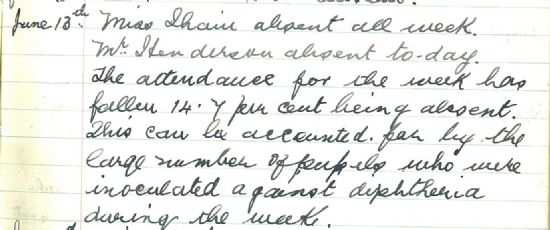 June 13th Miss Thain absent all week.
Mr. Henderson absent to-day.
The attendance for the week has
fallen 14.7 per cent being absent.
This can be accounted for by the
large number of pupils who were
inoculated against diphtheria
during the week.